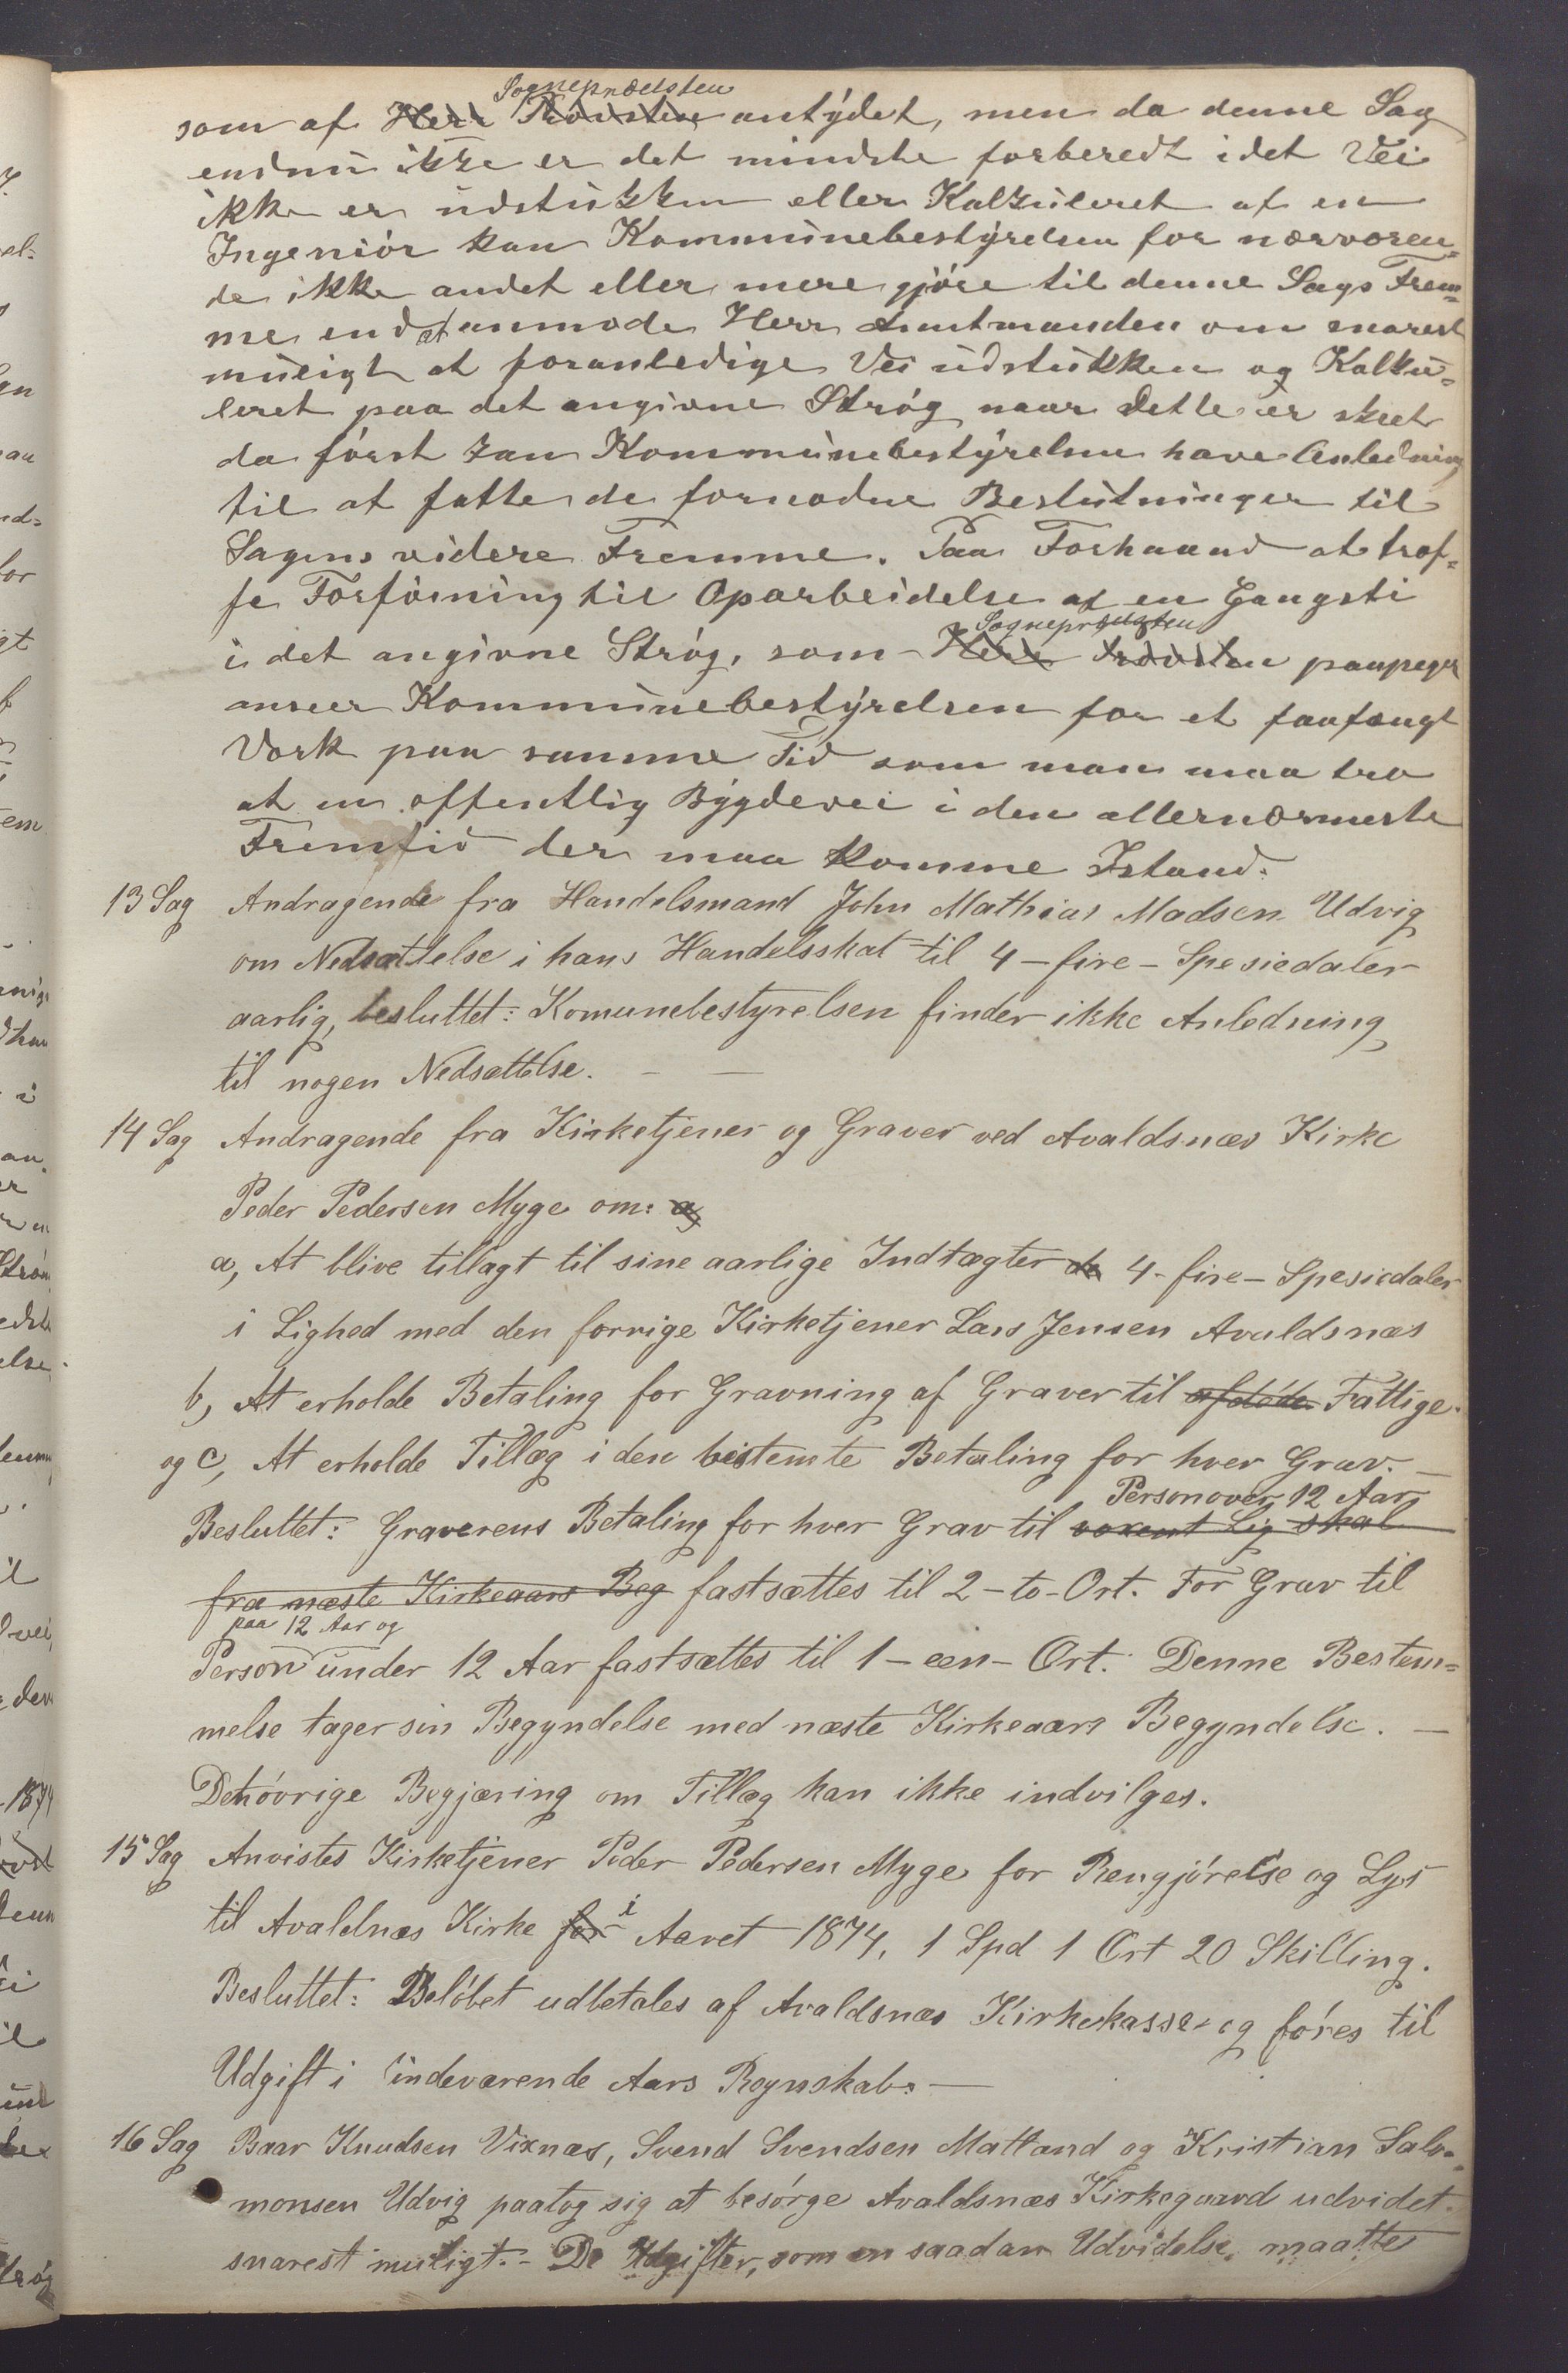 Sognepræsten
som af Herr Provsten antydet, men da denne Sag
endnu ikke er det mindste forberedt idet Vei
ikke er udstukken eller Kalkuleret af en
Ingeniør kan Kommunebestyrelsen for nærværen-
de ikke andet eller mere gjøre til denne Sags Frem-
me end at anmode Herr Amtmanden om snarest
muligt at foranledige Vei udstukken og Kalku-
leret paa det angivne Strøg naar dette er skeet
da først kan Kommunebestyrelsen have Anledning
til at fatte de fornødne Beslutninger til
Sagens videre Fremme. Paa Forhaand at træf-
fe Forføining til Oparbeidelse af en Gangsti
Sognepræsten
i det angivne Strøg, som Herr Provsten paapeger
anseer Kommunebestyrelsen for et faafængt
Værk paa samme Tid som man maa tro
at en offentlig Bygdevei i den allernærmeste
Fremtid der maa komme Istand.
13 Sag Andragende fra Handelsmand John Mathias Madsen Udvig
om Nedsættelse i hans Handelsskat til 4 - fire - Spesiedaler
aarlig, besluttet: Komunebestyrelsen finder ikke Anledning
til nogen Nedsættelse. - —
14 Sag Andragende fra Kirketjener og Graver ved Avaldsnæs Kirke
Peder Pedersen Myge om: a,
a, At blive tillagt til sine aarlige Indtægter de 4 - fire - Spesiedaler
i Lighed med den forrige Kirketjener Lars Jensen Avaldsnæs
b, At erholde Betaling for Gravning af Graver til afdøde Fattige.
og c, At erholde Tillæg i den bestemte Betaling for hver Grav. —
Person over 12 Aar
Besluttet: Graverens Betaling for hver Grav til voxent Lig skal
fra næste Kirkeaars Beg fastsættes til 2 - to - Ort. For Grav til
paa 12 Aar og
Person under 12 Aar fastsættes til 1 - een - Ort. Denne Bestem-
melse tager sin Begyndelse med næste Kirkeaars Begyndelse. —
Det øvrige Begjæring om Tillæg kan ikke indvilges.
15 Sag Anvistes Kirketjener Peder Pedersen Myge for Rengjørelse og Lys
til Avaldnæs Kirke for i Aaret 1874, 1 Spd 1 Ort 20 Skilling.
Besluttet: Beløbet udbetales af Avaldsnæs Kirkekasse og føres til
Udgift i indeværende Aars Regnskab. —
16 Sag Baar Knudsen Vixnæs, Svend Svendsen Matland og Kristian Salo-
monsen Udvig paatog sig at besørge Avaldsnæs Kirkegaard udvidet
snarest muligt. - De Udgifter, som en saadan Udvidelse maatte